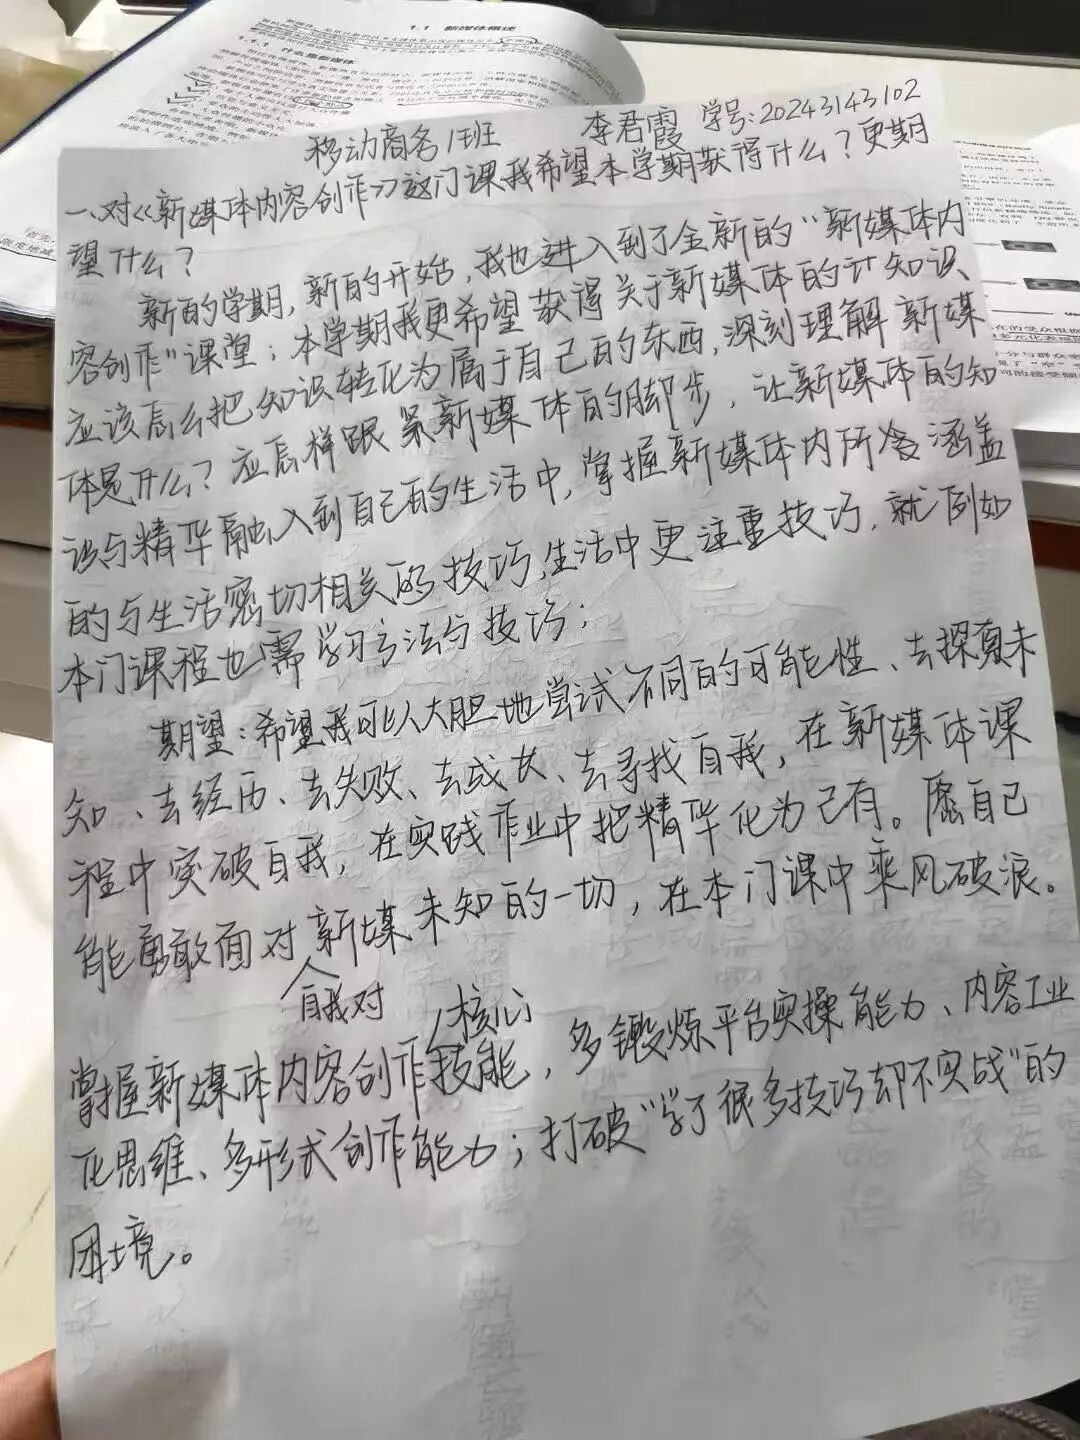 1.1 新媒体概述
1.1.1 什么是新媒体
移动商务1班 李君霞 学号:20243143102
一、对《新媒体内容创作》这门课我希望本学期获得什么?更期
望什么?
新的学期,新的开始,我也进入到了全新的“新媒体内
容创作”课堂;本学期我更希望获得关于新媒体的计知识、
应该怎么把知识转化为属于自己的东西,深刻理解新媒
体是什么?应怎样跟紧新媒体的脚步,让新媒体的知
识与精华融入到自己的生活中,掌握新媒体内所含涵盖
的与生活密切相关的技巧,生活中更注重技巧,就例如
本门课程也需学习方法与技巧;
期望:希望我可以大胆地尝试不同的可能性、去探索未
知、去经历、去失败、去成长、去寻找自我,在新媒体课
程中突破自我,在实践作业中把精华化为己有。愿自己
能勇敢面对新媒未知的一切,在本门课中乘风破浪。
自我对 核心
掌握新媒体内容创作技能,多锻炼平台实操能力、内容工业
化思维、多形式创作能力;打破“学了很多技巧却不实战”的
困境。